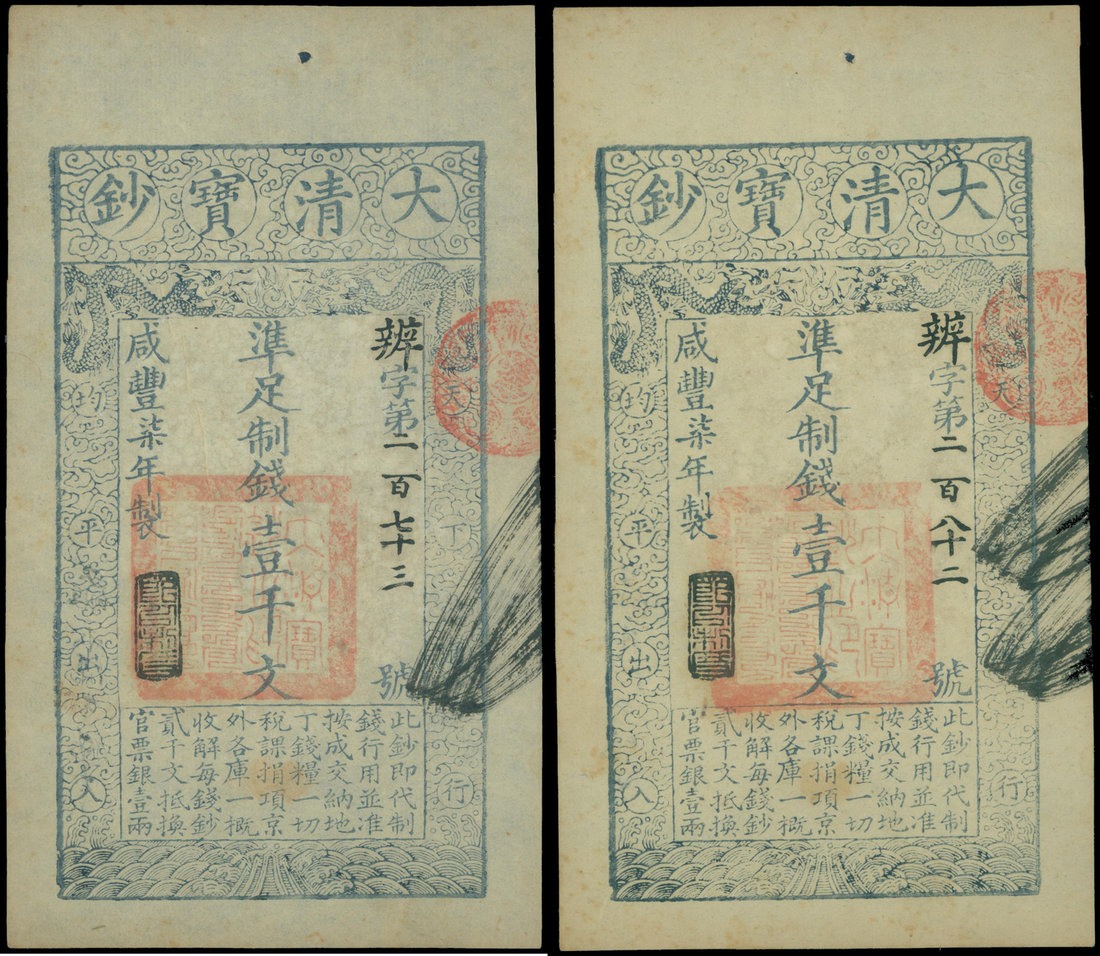 大清寶鈔
天下
行
辨字第二百七十三號
準足制錢壹千文
咸豐柒年製
均平出入
此鈔即代制
錢行用並准
按成交納地
丁錢糧一切
稅課捐項京
外各庫一概
收解每錢鈔
貳千文抵換
官票銀壹兩
大清寶鈔
天
行
辨字第二百八十二號
準足制錢壹千文
咸豐柒年製
均平出入
此鈔即代制
錢行用並准
按成交納地
丁錢糧一切
稅課捐項京
外各庫一概
收解每錢鈔
貳千文抵換
官票銀壹兩